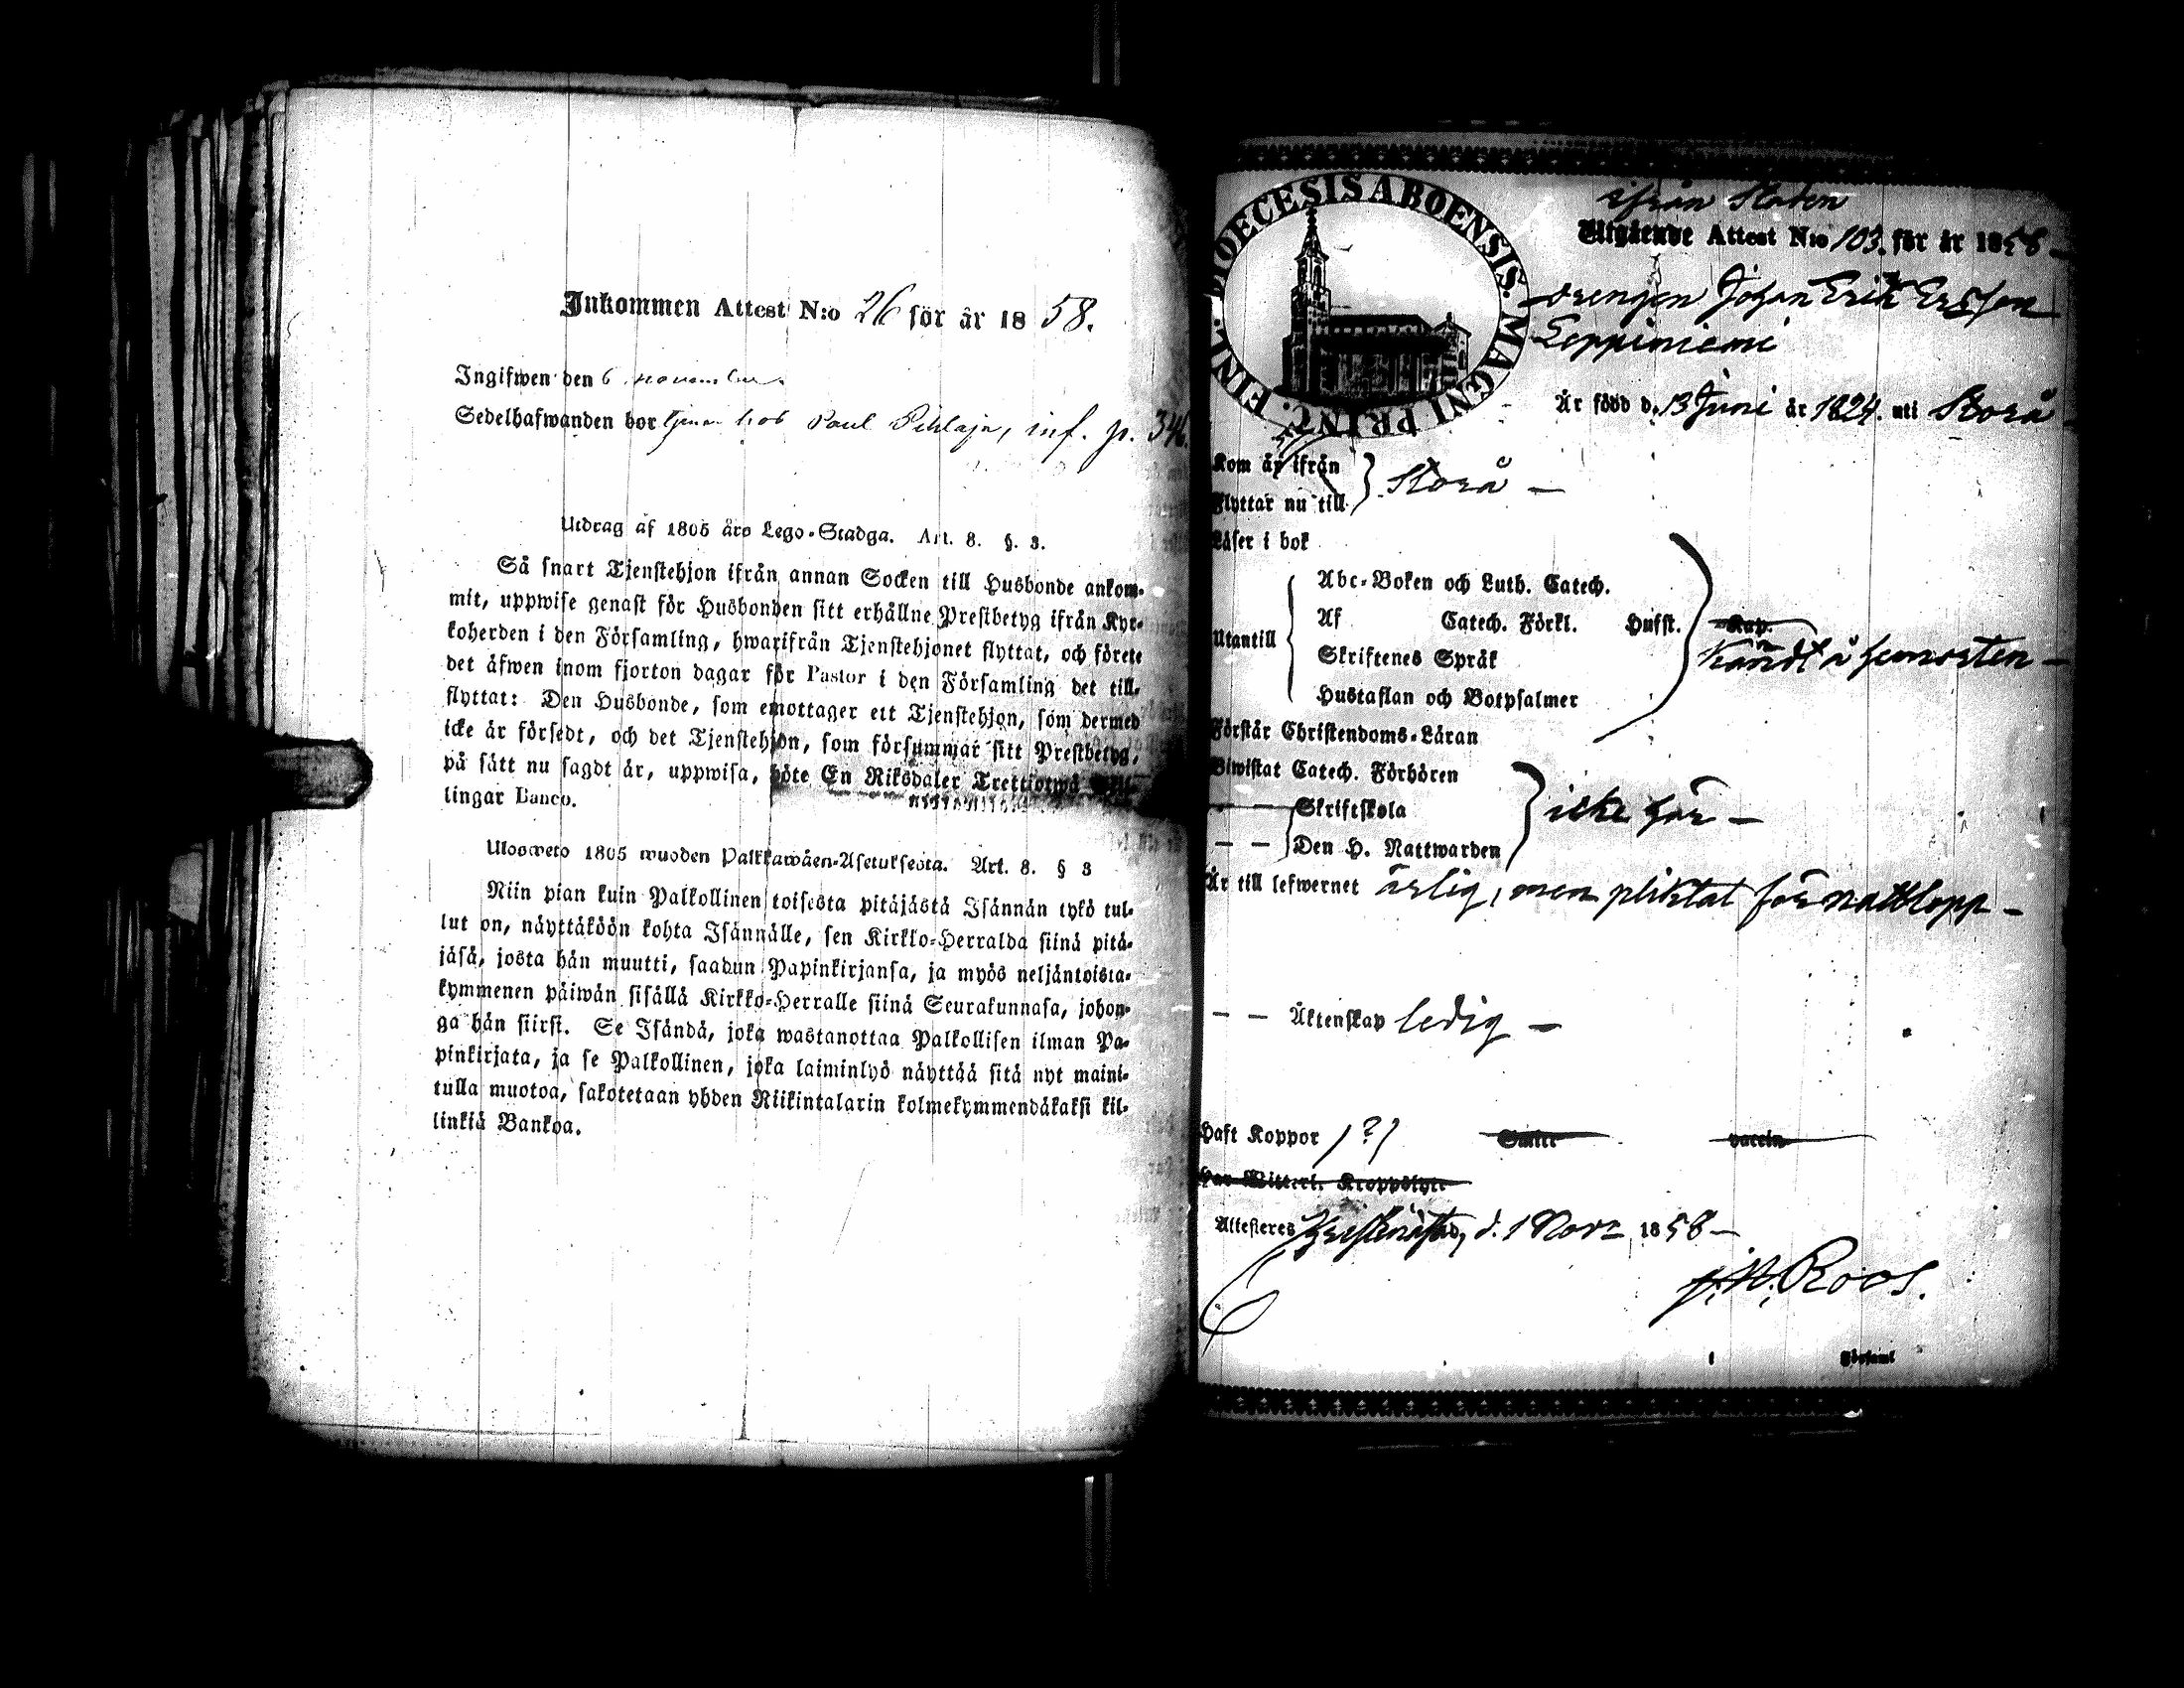 Inkommen Attest N:o 26 för år 1858.
Ingifwen den 6 november.
Sedelhafwanden bor tjenar hos Paul Pihlaja, inf. p. 346.
Utdrag af 1805 års Lego-Stadga. Art. 8. §. 3.
Så snart Tjenstehjon ifrån annan Socken till Husbonde ankom-
mit, uppwise genast för Husbonden sitt erhållne Prestbetyg ifrån Kyr-
koherden i den Församling, hwarifrån Tjenstehjonet flyttat, och förete
det äfwen inom fjorton dagar för Pastor i den Församling det till-
flyttat: Den Husbonde, som emottager ett Tjenstehjon, som dermed
icke är försedt, och det Tjenstehjon, som försummar sitt Prestbetyg,
på sätt nu sagdt är, uppwisa, böte En Riksdaler Trettiotwå Skil-
lingar Banco.
Ulosweto 1805 wuoden Palkkawäen-Asetuksesta. Art. 8. § 3
Niin pian kuin Palkollinen toisesta pitäjästä Isännän tykö tul-
lut on, näyttäköön kohta Isännälle, sen Kirkko-Herralda siinä pitä-
jäsä, josta hän muutti, saadun Papinkirjansa, ja myös neljäntoista-
kymmenen päiwän sisällä Kirkko-Herralle siinä Seurakunnasa, johon-
ga hän siirsi. Se Isändä, joka wastanottaa Palkollisen ilman Pa-
pinkirjata, ja se Palkollinen, joka laiminlyö näyttää sitä nyt maini-
tulla muotoa, sakotetaan yhden Riikintalarin kolmekymmendäkaksi kil-
linkiä Bankoa.
DIOECESIS ABOENSIS. MAGNI PRINC. FINL.
ifrån Staden
Utgående Attest N:o 103. för år 1858 -
drengen Johan Erik Ersson
Leppiniemi
Är född d. 13 Juni år 1824. uti Storå
Kom är ifrån
Flyttar nu till } Storå -
Läser i bok
Abc-Boken och Luth. Catech.
Af Catech. Förkl. Hufst. Kap.
Utantill
Skriftenes Språk
kändt å hemorten -
Hustaflan och Botpsalmer
Förstår Christendoms-Läran
Biwistat Catech. Förhören
- - Skriftskola } icke här -
- - Den H. Nattwarden
Är till lefwernet ärlig, men pliktat för nattlopp -
- - Äktenskap ledig -
Haft Koppor (?)
Har Witterl. Kroppslyte
Attesteres Kristinestad, d. 1 Nov. 1858 -
Roos.
Församl